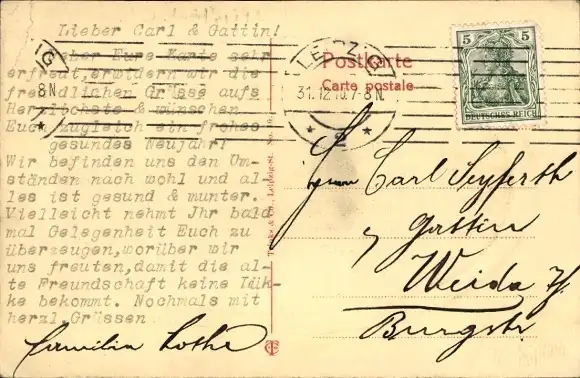 Lieber Carl & Gattin!
Ueber Eure Karte sehr
erfreut,erwidern wir die
freundlichen Grüsse aufs
Herzlichste & wünschen
Euch zugleich ein frohes
gesundes Neujahr!
Wir befinden uns den Um-
ständen nach wohl und al-
les ist gesund & munter.
Vielleicht nehmt Jhr bald
mal Gelegenheit Euch zu
überzeugen,worüber wir
uns freuten,damit die al-
te Freundschaft keine Lük-
ke bekommt. Nochmals mit
herzl.Grüssen
Familie
8N
LEIPZIG
31.12.10.7-8N
* 2 *
Postkarte
Carte postale
5 5
DEUTSCHES REICH
Herrn Carl Seyfferth
& Gattin
Weida i/Th.
Burgstr